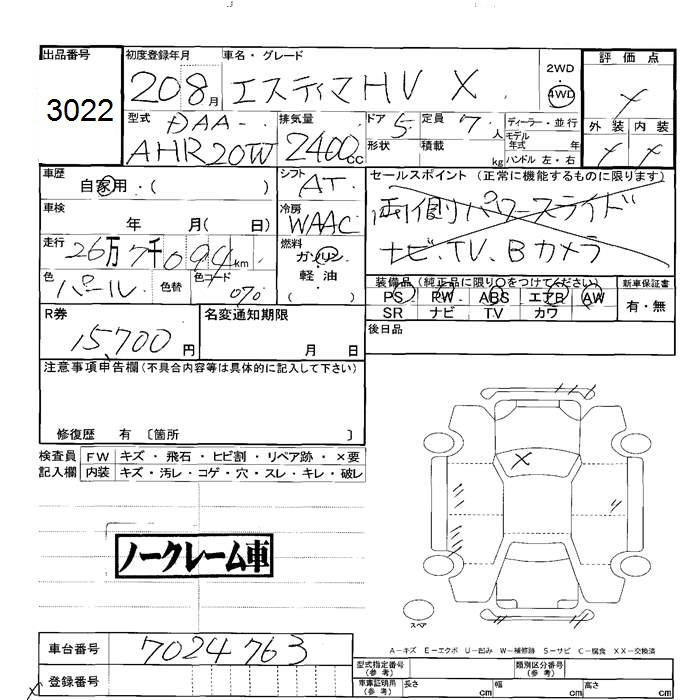 出品番号 初度登録年月 車名・グレード 評価点
3022 20 8月 エスティマHV X 2WD・4WD
外装 内装
型式 DAA- AHR20W 排気量 2400cc ドア 5 定員 7人 ディーラー・並行
形状 積載 kg モデル年式 年
ハンドル 左・右
車歴 自家用・( ) シフト AT セールスポイント (正常に機能するものに限ります)
車検 年 月( 日) 冷房 WAAC 両側パワースライド
走行 26万7千094km 燃料 ガソリン・軽油 ( ) ナビ.TV.Bカメラ
色 パール 色替 色コード 070 装備品 (純正品に限り○をつけてください) 新車保証書
PS PW ABS エアB AW 有・無
SR ナビ TV カワ
R券 15,700円 名変通知期限 月 日 後日品
注意事項申告欄(不具合内容等は具体的に記入して下さい)
修復歴 有 〔箇所 〕
検査員 FW キズ・飛石・ヒビ割・リペア跡・×要
記入欄 内装 キズ・汚レ・コゲ・穴・スレ・キレ・破レ
ノークレーム車
スペア
車台番号 7024763
A-キズ E-エクボ U-凹み W-補修跡 S-サビ C-腐食 XX-交換済
登録番号
型式指定番号(参考) 類別区分番号(参考)
車庫証明用(参考) 長さ cm 幅 cm 高さ cm